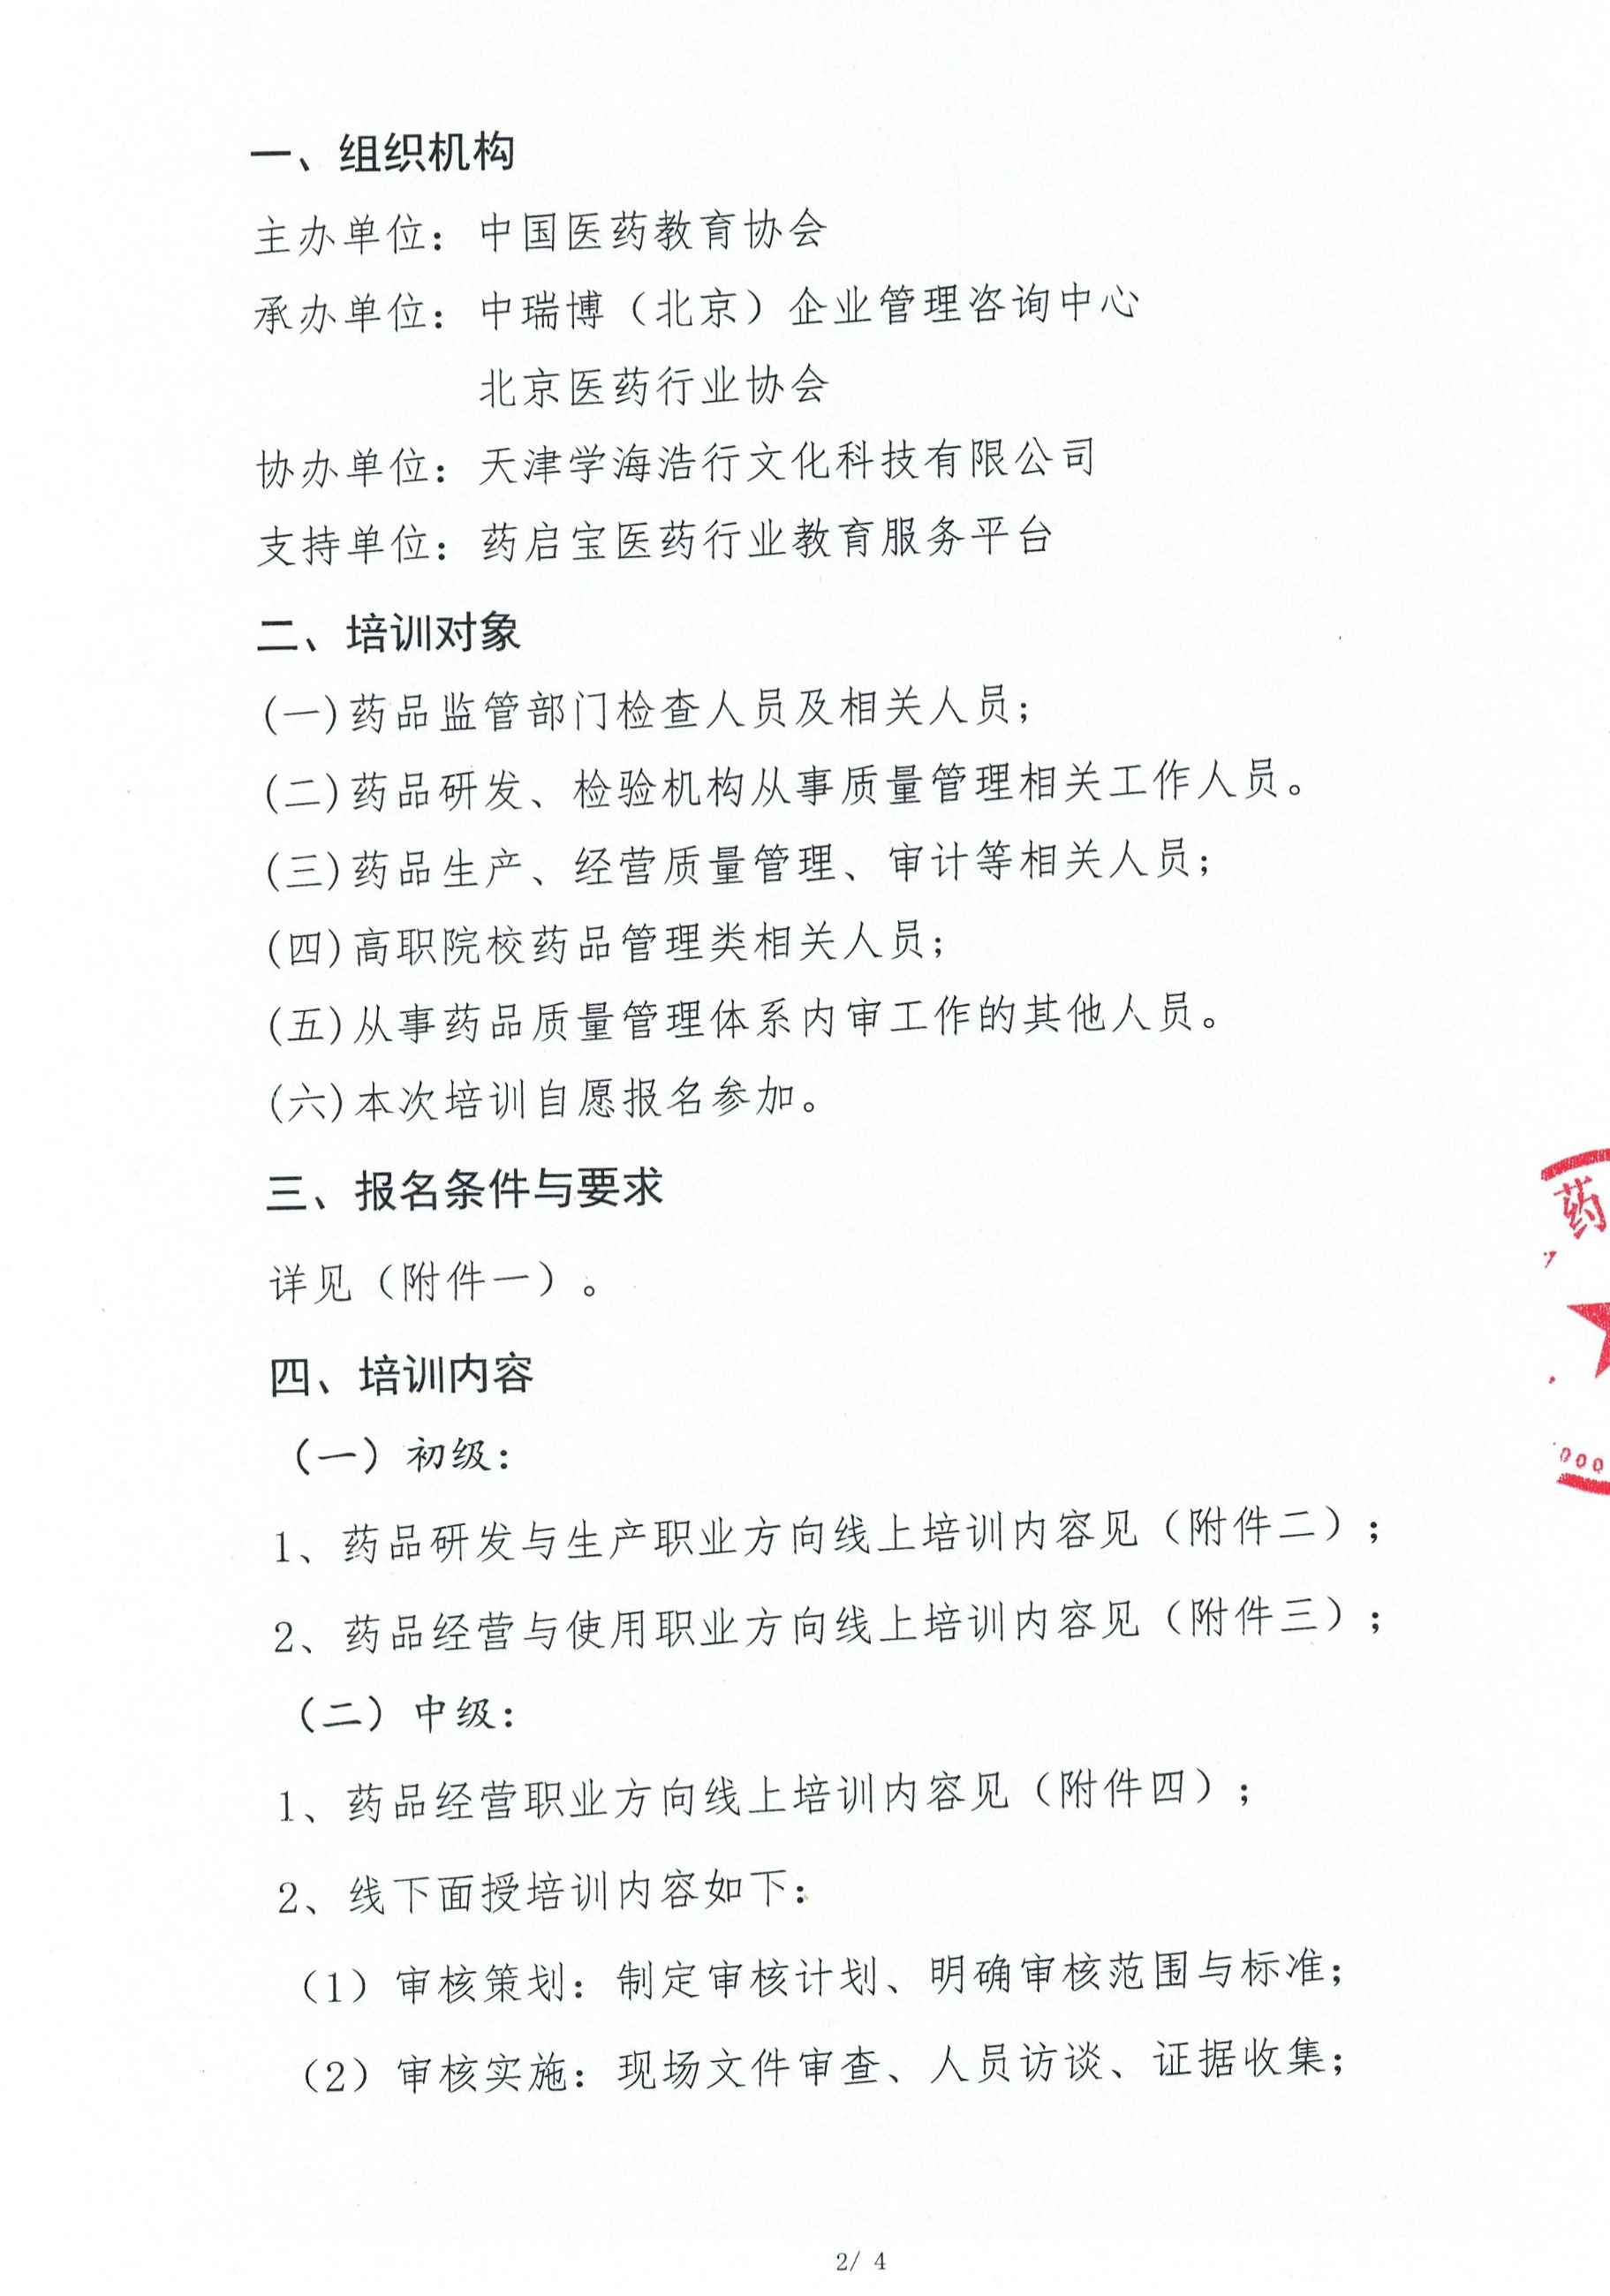 一、组织机构
主办单位：中国医药教育协会
承办单位：中瑞博（北京）企业管理咨询中心
北京医药行业协会
协办单位：天津学海浩行文化科技有限公司
支持单位：药启宝医药行业教育服务平台
二、培训对象
(一)药品监管部门检查人员及相关人员；
(二)药品研发、检验机构从事质量管理相关工作人员。
(三)药品生产、经营质量管理、审计等相关人员；
(四)高职院校药品管理类相关人员；
(五)从事药品质量管理体系内审工作的其他人员。
(六)本次培训自愿报名参加。
三、报名条件与要求
详见（附件一）。
药
四、培训内容
（一）初级：
000
1、药品研发与生产职业方向线上培训内容见（附件二）；
2、药品经营与使用职业方向线上培训内容见（附件三）；
（二）中级：
1、药品经营职业方向线上培训内容见（附件四）；
2、线下面授培训内容如下：
（1）审核策划：制定审核计划、明确审核范围与标准；
（2）审核实施：现场文件审查、人员访谈、证据收集；
2/ 4